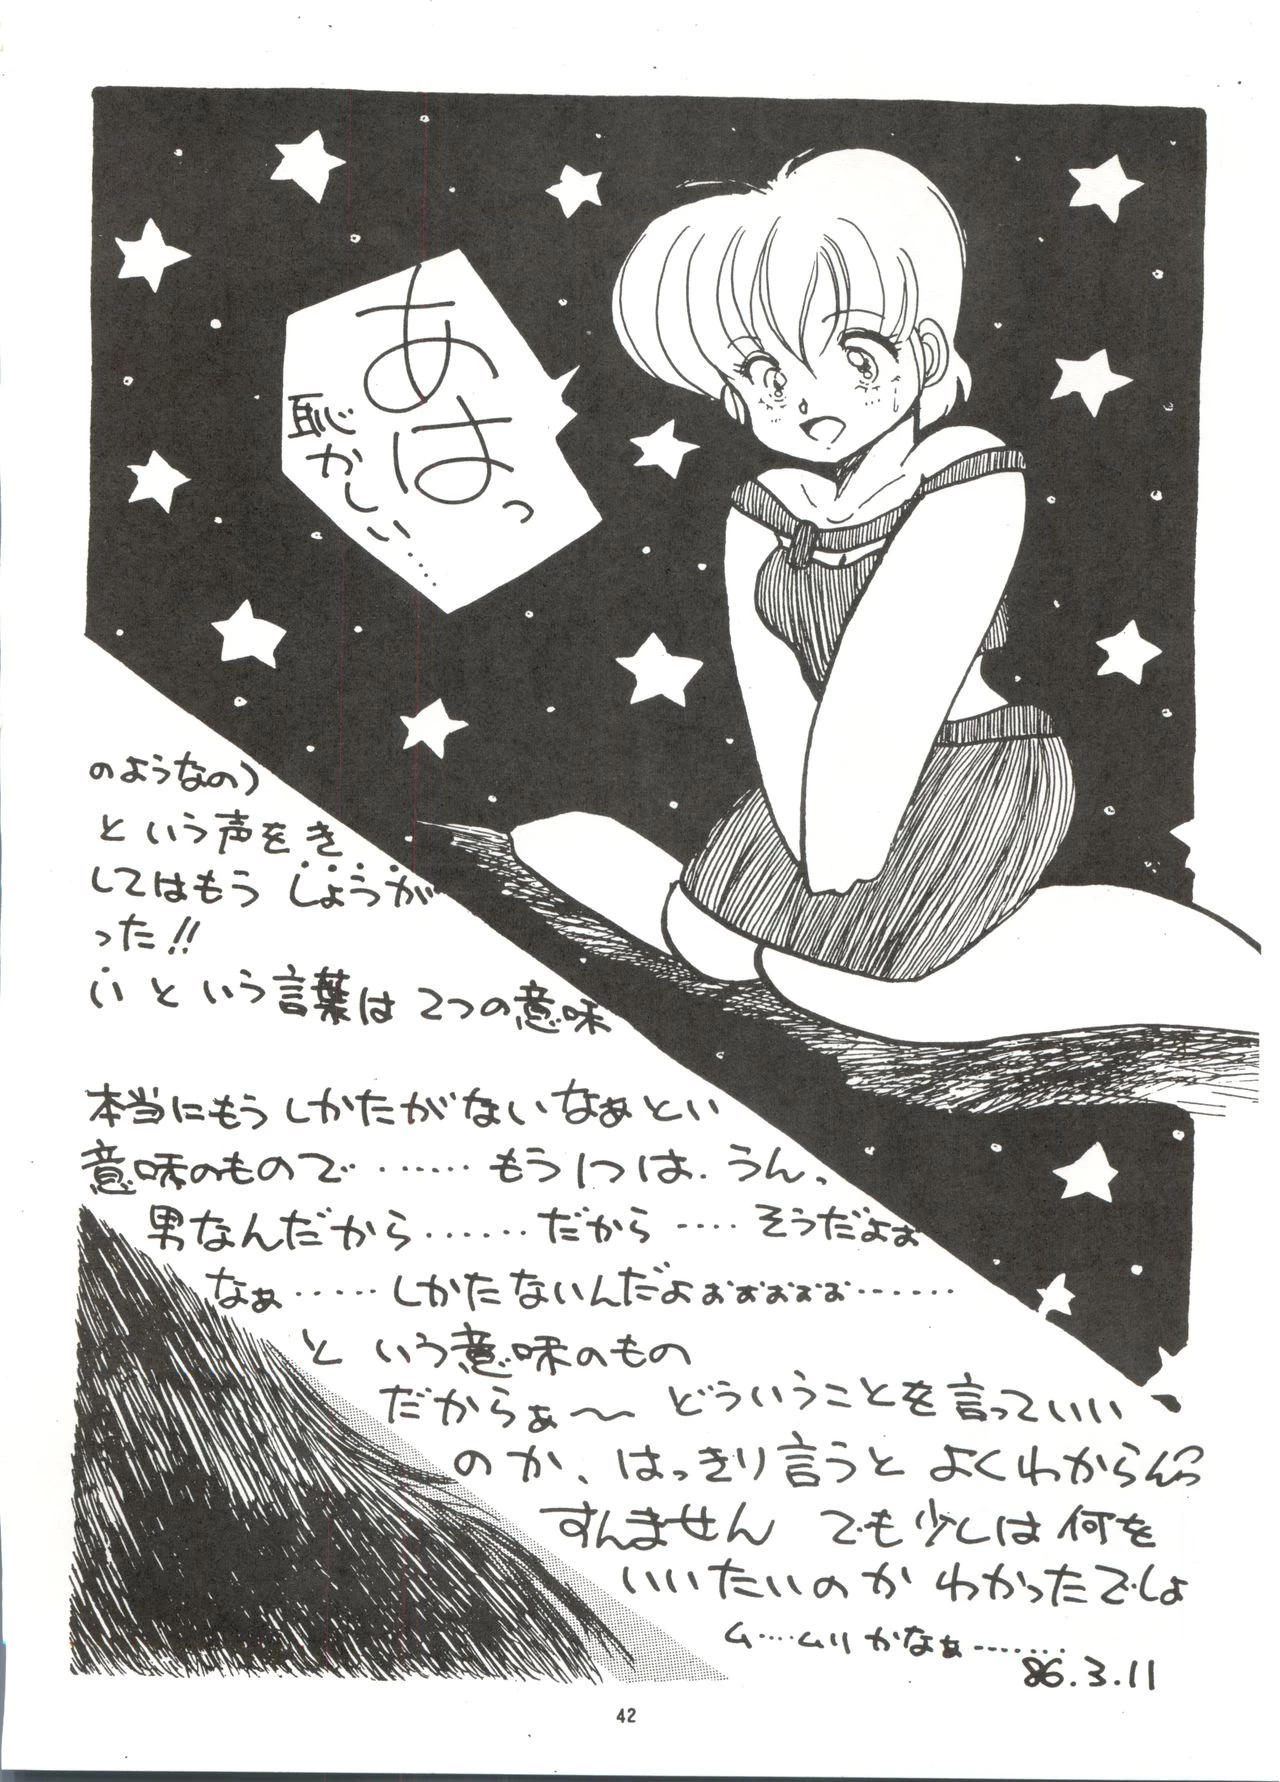 あはっ
恥かしい……
のようなの）
という声をき
してはもう しょうが
った!!
いという言葉は2つの意味
本当にもうしかたがないなぁとい
意味のもので……もう1つは.うん、
男なんだから……だから‥‥そうだよぉ
なぁ……しかたないんだよぉぉぉぉぉ……
という意味のもの
だからぁ〜 どういうことを言っていい
のか、はっきり言うと よくわからんっ
すんません でも少しは何を
いいたいのか わかったでしょ
ム…ムリかなぁ……
86.3.11
42